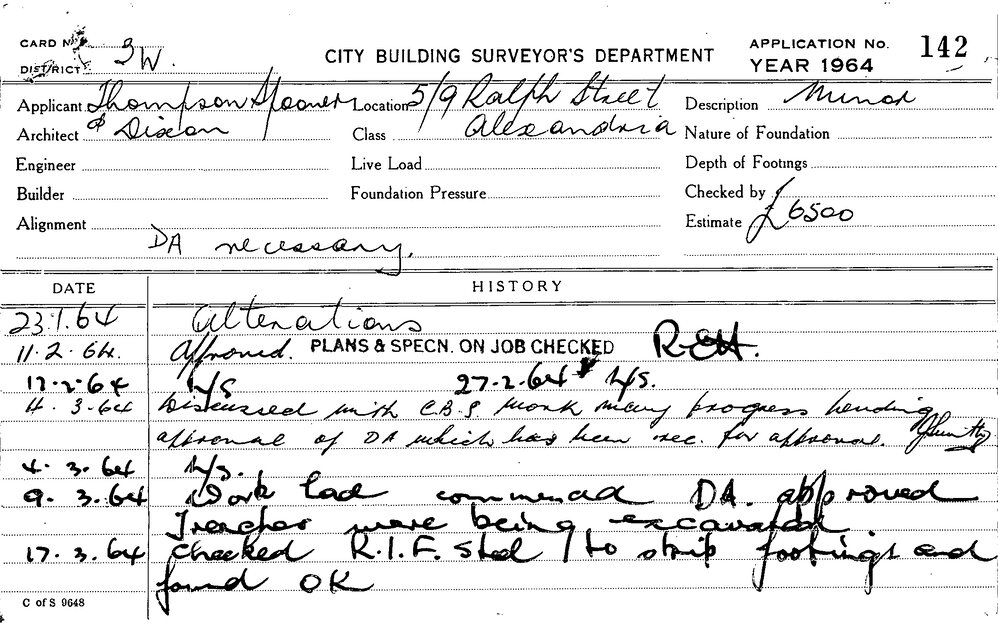 CARD No.
DISTRICT 3W.
CITY BUILDING SURVEYOR'S DEPARTMENT
APPLICATION No. 142
YEAR 1964
Applicant Thompson Spooner Location 5/9 Ralph Street Description Minor
Architect & Dixon Class Alexandria Nature of Foundation
Engineer Live Load Depth of Footings
Builder Foundation Pressure Checked by
Alignment Estimate £6500
DA necessary.
DATE HISTORY
23.1.64 Alterations
11.2.64. Approved. PLANS & SPECN. ON JOB CHECKED R.EH.
17.2.64 N/S 27.2.64 N/S.
4.3.64 Discussed with C.B.S. work may progress pending
approval of DA which has been rec. for approval.
4.3.64 N/S.
9.3.64 Work had commenced DA. approved
Trenches were being excavated
17.3.64 Checked R.I.F. Steel to strip footings and
found OK
C of S 9648